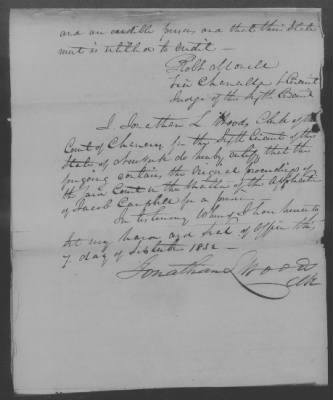 and are credible persons and that their state
ment is entitled to credit —
Robt Monell
Vice Chancellor & Circuit
Judge of the Sixth Circuit
I, Jonathan L Woods Clerk of the
Court of Chancery for the Sixth Circuit of the
State of New York do hereby certify that the
foregoing contains the original proceedings of
the said Court in the matter of the application
of Jacob for a pension
In testimony Whereof I have hereunto
set my hand and seal of office this
7 day of September 1832 —
Jonathan L Woods
Clk